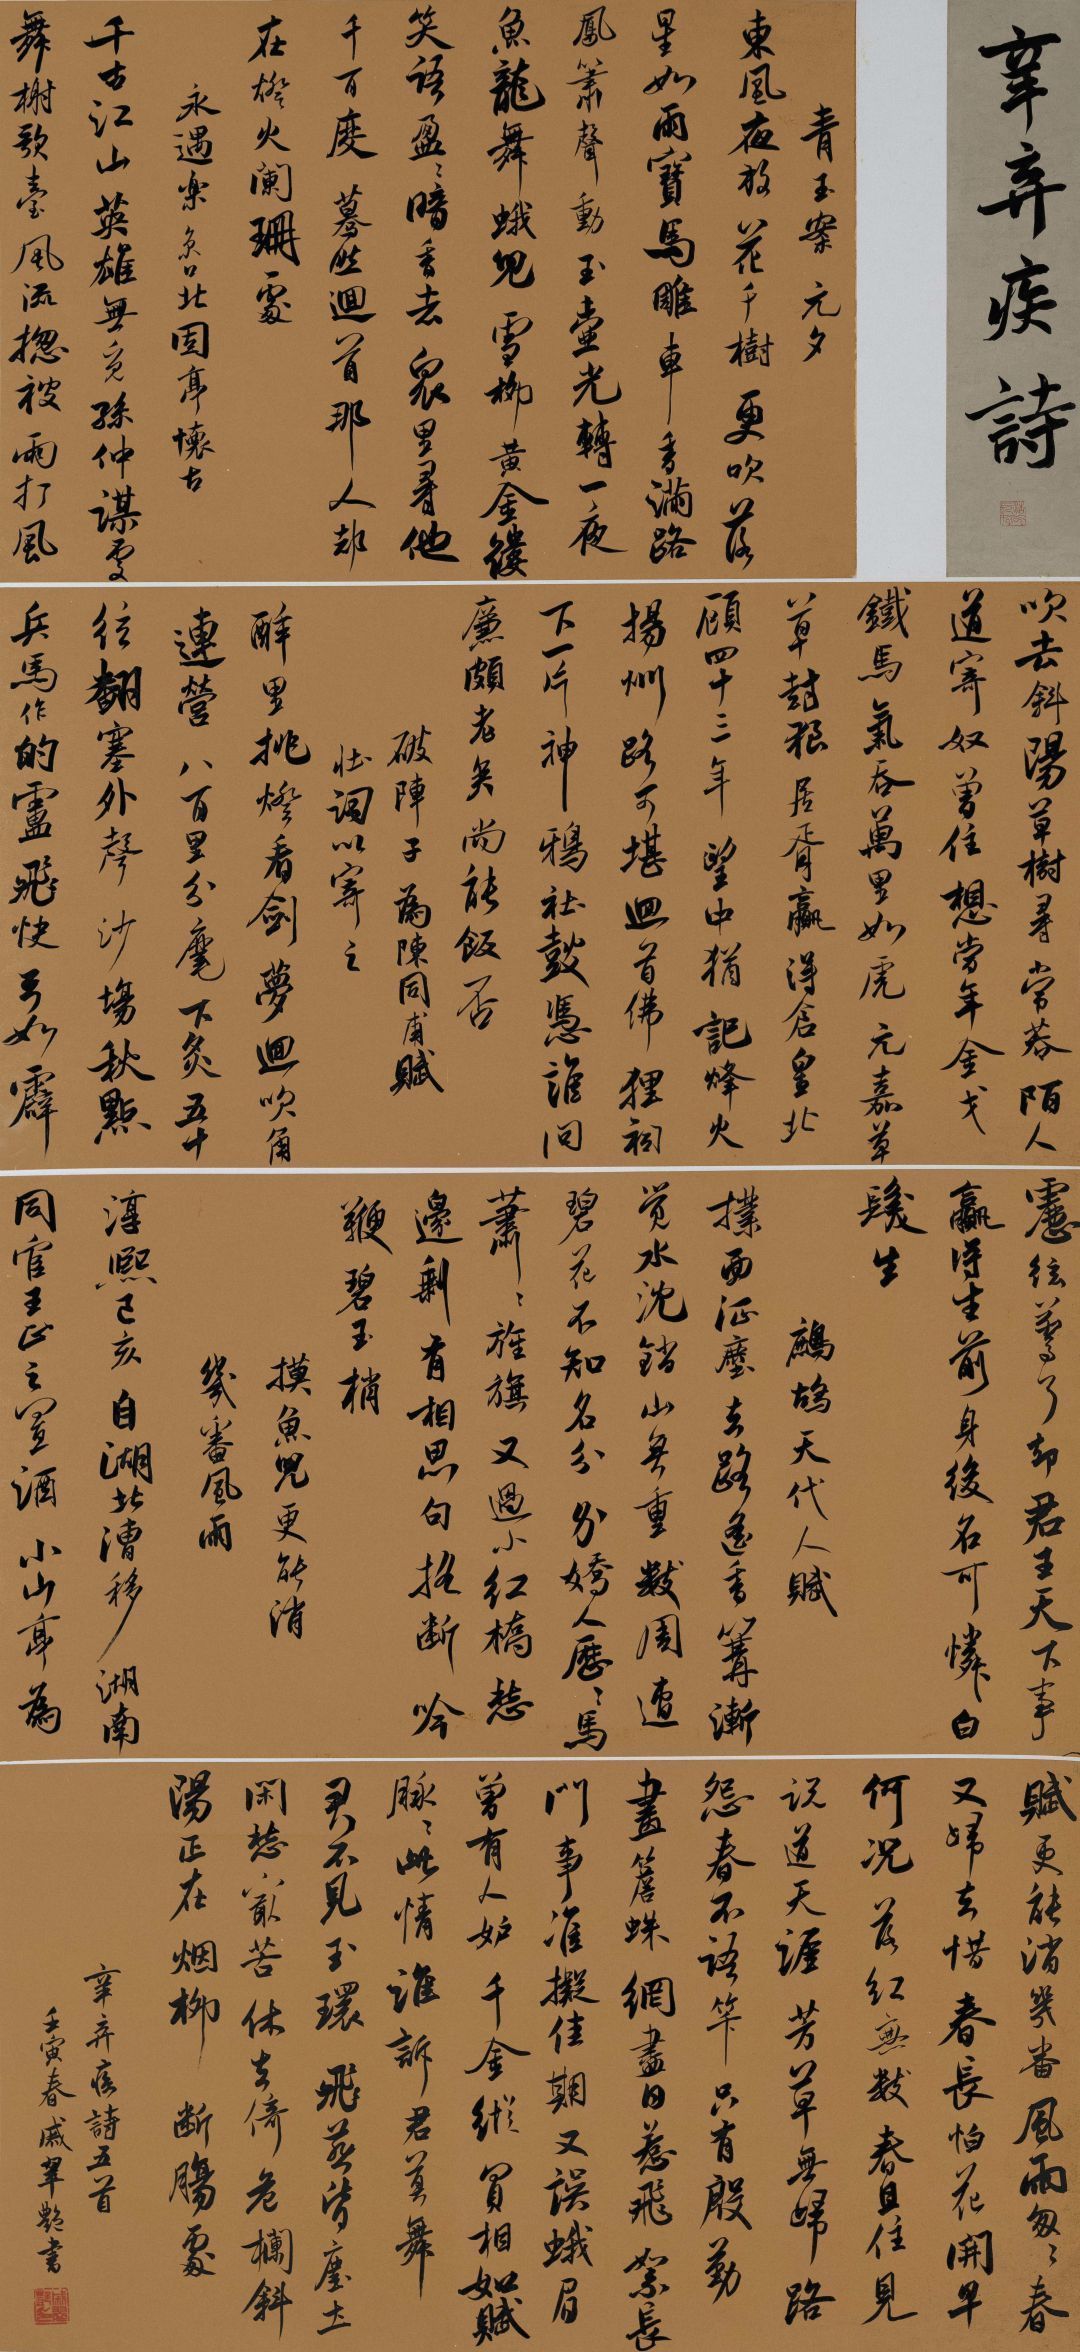 辛弃疾詩
青玉案 元夕
東風夜放花千樹 更吹落
星如雨寶馬雕車香滿路
鳳簫聲動玉壺光轉一夜
魚龍舞 蛾兒雪柳黃金縷
笑語盈〻暗香去 衆里尋他
千百度 驀然迴首那人却
在燈火闌珊處
永遇樂 京口北固亭懷古
千古江山英雄無覓孫仲謀處
舞榭歌臺風流揔被雨打風
吹去斜陽草樹尋常巷陌人
道寄奴曾住想當年金戈
鐵馬氣吞萬里如虎元嘉草
草封狼居胥贏得倉皇北
顧四十三年望中猶記烽火
揚州路可堪迴首佛狸祠
下一片神鴉社鼓憑誰問
廉頗老矣尚能飯否
破陣子 為陳同甫賦
壯詞以寄之
醉里挑燈看劍 夢迴吹角
連營 八百里分麾下炙 五十
弦翻塞外聲 沙場秋點
兵馬作的盧飛快弓如霹
靂弦驚了却君王天下事
贏得生前身後名可憐白
髮生
鷓鴣天代人賦
撲面征塵去路遙香篝漸
覺水沈銷山無重數周遭
碧花不知名分外嬌人歷〻馬
蕭〻旌旗又過小红橋愁
邊剩有相思句搖断吟
鞭碧玉梢
摸魚兒更能消
幾番風雨
淳熙己亥自湖北漕移湖南
同官王正之置酒小山亭為
賦更能消幾番風雨匆〻春
又歸去惜春長怕花開早
何況落红無數春且住見
说道天涯芳草無歸路
怨春不語筭只有殷勤
畫簷蛛網盡日惹飛絮長
门事准擬佳期又誤蛾眉
曾有人妒千金縱買相如賦
脉〻此情誰訴君莫舞
君不見玉環飛燕皆塵土
閑愁最苦休去倚危欄斜
陽正在烟柳断腸處
辛弃疾詩五首
壬寅春戚翠艷書